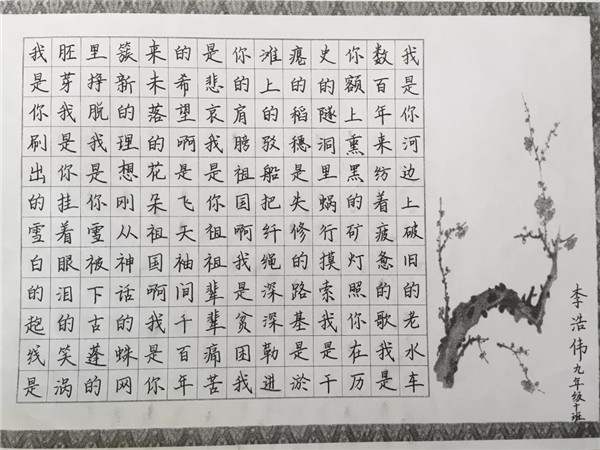 我是你河边上破旧的老水车
数百年来纺着疲惫的歌我是
你额上熏黑的矿灯照你在历
史的隧洞里蜗行摸索我是干
瘪的稻穗是失修的路基是淤
滩上的驳船把纤绳深深勒进
你的肩膀祖国啊我是贫困我
是悲哀我是你祖祖辈辈痛苦
的希望啊是飞天袖间千百年
来未落的花朵祖国啊我是你
簇新的理想刚从神话的蛛网
里挣脱我是你雪被下古蓬的
胚芽我是你挂着眼泪的笑涡
我是你刷出的雪白的起线是
李浩伟九年级十班